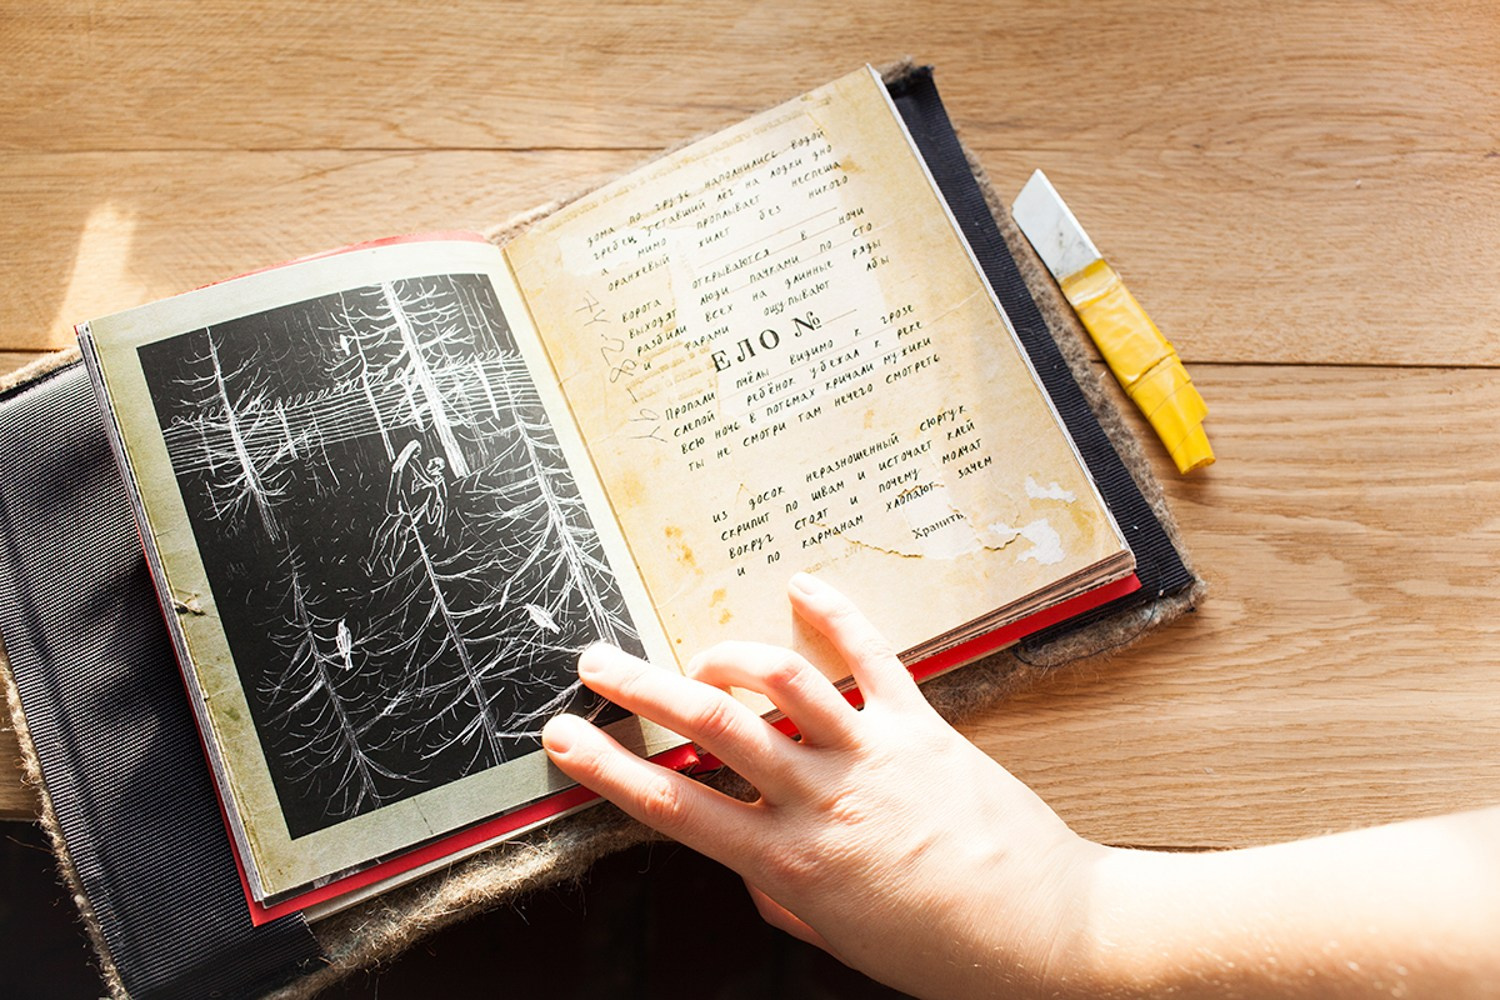 дома по грудь наполнились водой
гребец уставший лёг на лодки дно
а мимо проплывает неспеша
оранжевый жилет без никого
ворота открываются в ночи
выходят люди пачками по сто
разбили всех на длинные ряды
и фарами ощупывают лбы
ЕЛО №
Пропали пчёлы видимо к грозе
слепой ребёнок убежал к реке
всю ночь в потьмах кричали мужики
ты не смотри там нечего смотреть
из досок неразношенный сюртук
скрипит по швам и источает клей
вокруг стоят и почему молчат
и по карманам хлопают зачем
Хранить